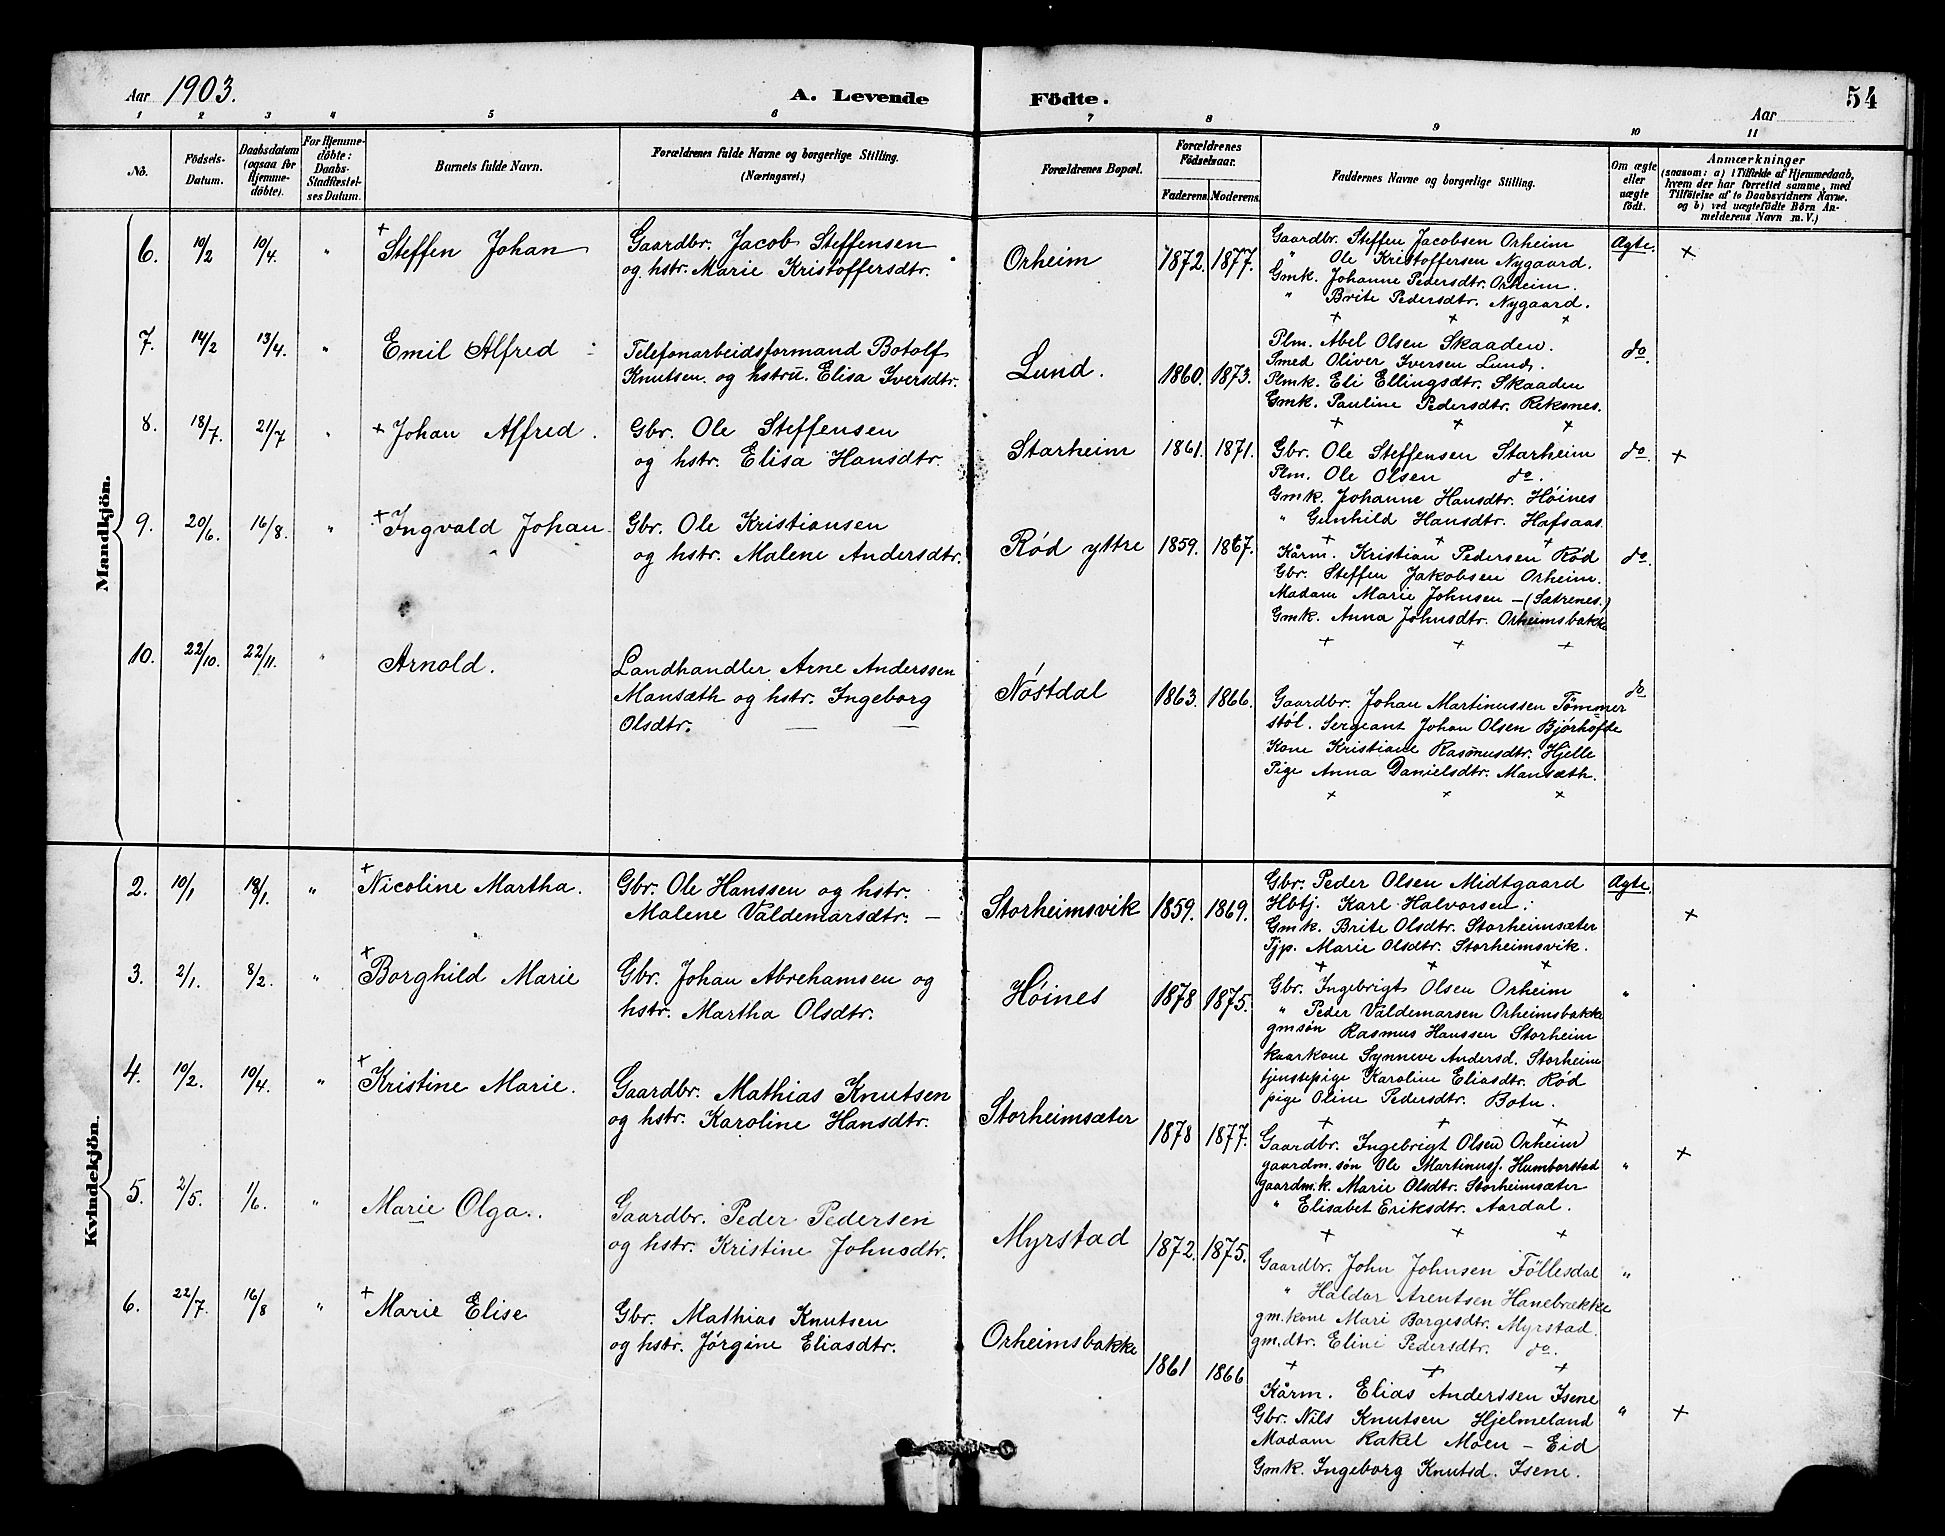 Aar 1903. A. Levende Födte. Aar 54
1 2 3 4 5 6 7 8 9 10 11
No.
Födsels-Datum.
Daabsdatum (ogsaa for Hjemme-döbte).
For Hjemme-döbte: Daabs-Stadfæstel-ses Datum.
Barnets fulde Navn.
Forældrenes fulde Navne og borgerlige Stilling.
(Næringsvei.)
Forældrenes Bopæl.
Forældrenes Födselsaar.
Faderens. Moderens.
Faddernes Navne og borgerlige Stilling.
Om ægte eller uægte födt.
Anmærkninger
(saasom: a) i Tilfælde af Hjemmedaab,
hvem der har forrettet samme, med
Tilföielse af to Daabsvidners Navne.
og b) ved uægtefödte Börn An-
melderens Navn m. V.)
Mandkjön.
6. 10/2 10/4. " + Steffen Johan
Gaardbr. Jacob Steffensen
og hstr. Marie Kristoffersdtr.
Orheim 1872. 1877.
Gaardbr. Steffen Jacobsen Orheim
" Ole Kristoffersen Nygaard.
Gmk. Johanne Pedersdtr. Orheim.
" Brite Pedersdtr. Nygaard.
+ + +
Ægte. +
7. 14/2 13/4. " Emil Alfred
Telefonarbeidsformand Botolf
Knutsen. og hstru. Elisa Iversdtr.
Lund. 1860. 1873.
Plm. Abel Olsen Skaaden.
Smed Oliver Iversen Lund.
Plmk. Eli Ellingsdtr. Skaaden
Gmk. Pauline Pedersdtr. Reksnes.
+ + +
do.
8. 18/7. 21/7 " + Johan Alfred.
Gbr. Ole Steffensen
og hstr. Elisa Hansdtr.
Starheim 1861. 1871.
Gbr. Ole Steffensen Starheim
Plm. Ole Olsen do.
Gmk. Johanne Hansdtr. Høines
" Gunhild Hansdtr. Hafsaas.
+ + +
do. +
9. 20/6. 16/8. " + Ingvald Johan
Gbr. Ole Kristiansen
og hstr. Malene Andersdtr.
Rød yttre 1859. 1867.
Kårm. Kristian Pedersen Rød
Gbr. Steffen Jakobsen Orheim.
Madam Marie Johnsen – (Sætrenes.)
Gmk. Anna Johnsdtr. Orheimsbakke
+ + +
do.
10. 22/10. 22/11. " Arnold.
Landhandler Arne Anderssen
Mansæth og hstr. Ingeborg
Olsdtr.
Nóstdal 1863. 1866.
Gaardbr. Johan Martinussen Tömmer
stól. Sergeant Johan Olsen Bjórhofde
Kone Kristiane Rasmusdtr. Hjelle
Pige Anna Danielsdtr. Mansæth.
+ + +
do
Kvindekjön.
2. 10/1 18/1. " + Nicoline Martha.
Gbr. Ole Hanssen og hstr.
Malene Valdemarsdtr. –
Storheimsvik 1859. 1869.
Gbr. Peder Olsen Midtgaard
Hbtj. Karl Halvorsen.
Gmk. Brite Olsdtr. Storheimsæter
Tjp. Marie Olsdtr. Storheimsvik.
+ + +
Ægte. +
3. 2/1. 8/2. " + Borghild Marie
Gbr. Johan Abrehamsen og
hstr. Martha Olsdtr.
Hóines 1878 1875.
Gbr. Ingebrigt Olsen Orheim
" Peder Valdemarsen Orheimsbakke
gmsøn Rasmus Hanssen Storheim
kaarkone Synneve Andersd. Storheim
tjenstepige Karoline Eliasdtr. Rød
pige Oline Pedersdtr. Botn.
+ + +
"
4. 10/2. 10/4. " + Kristine Marie.
Gaardbr. Mathias Knutsen
og hstr. Karoline Hansdtr.
Storheimsæter 1878 1877.
Gaardbr. Ingebrigt Olsen Orheim
gaardm.søn Ole Martinusf. Humborstad
gaardm.k. Marie Olsdtr. Storheimsæter
" Elisabet Eriksdtr. Aardal.
+ + +
" +
5. 2/5. 1/6. " Marie Olga.
Gaardbr. Peder Pedersen
og hstr. Kristine Johnsdtr.
Myrstad 1872. 1875.
Gaardbr. John Johnsen Föllesdal
" Haldor Arentsen Hanebrække
gm.kone Mari Borgesdtr. Myrstad.
gm.dtr. Eline Pedersdtr. do.
+ + +
"
6. 22/7. 16/8 " + Marie Elise
Gbr. Mathias Knutsen
og hstr. Jørgine Eliasdtr.
Orheimsbakke 1861 1866
Kårm. Elias Anderssen Isene
Gbr. Nils Knutsen Hjelmeland
Madam Rakel Moen – Eid
Gmk. Ingeborg Knutsd. Isene.
" +